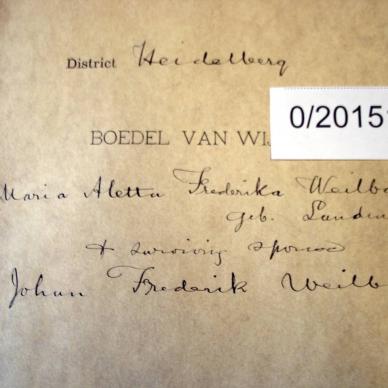 District Heidelberg
0/2015
BOEDEL VAN WIJ
Maria Aletta Frederika Weilb
geb. Lunden
& surviving spouse
Johan Frederik Weilb